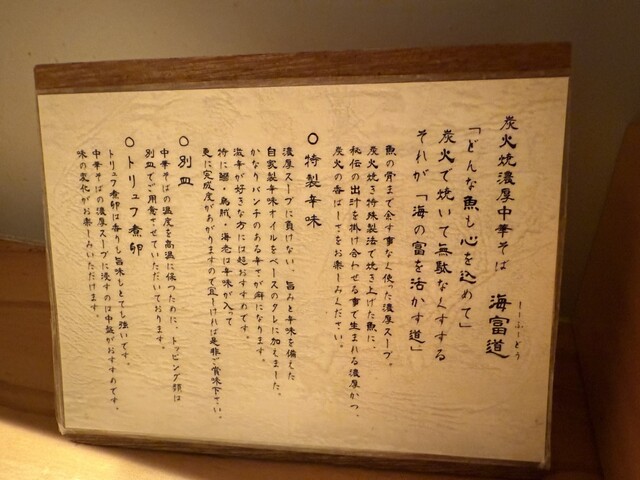 炭火焼濃厚中華そば 海富道
しーふーどう
「どんな魚も心を込めて」
炭火で焼いて無駄なくすする
それが「海の富を活かす道」
魚の骨まで余す事なく使った濃厚スープ。
炭火焼き特殊製法で焼き上げた魚に、
秘伝の出汁を掛け合わせる事で生まれる濃厚かつ、
炭火の香ばしさをお楽しみください。
○特製辛味
濃厚スープに負けない、旨みと辛味を備えた
自家製辛味オイルをベースのタレに加えました。
かなりパンチのある辛さが癖になります。
激辛が好きな方には超おすすめです。
特に鱧・烏賊・海老は辛味が入って
更に完成度があがりますので宜しければ是非ご賞味下さい。
○別皿
中華そばの温度を高温に保つために、トッピング類は
別皿でご用意させていただいております。
○トリュフ煮卵
トリュフ煮卵は香りも旨味もとても強いです。
中華そばの濃厚スープに浸すのは中盤がおすすめです。
味の変化がお楽しみいただけます。